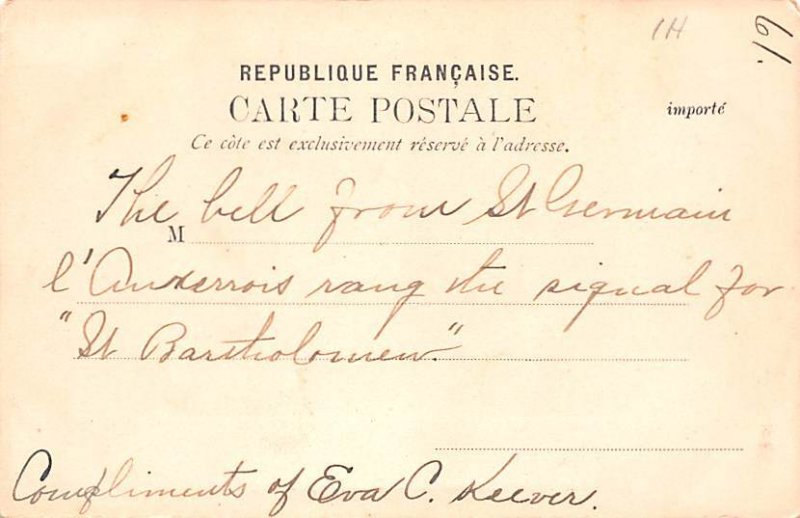 1H
19.
REPUBLIQUE FRANÇAISE.
CARTE POSTALE
importé
Ce côte est exclusivement réservé à l'adresse.
The bell from St Germain
M
l'Auxerrois rang the signal for
"St Bartholomew."
Compliments of Eva C. Keever.